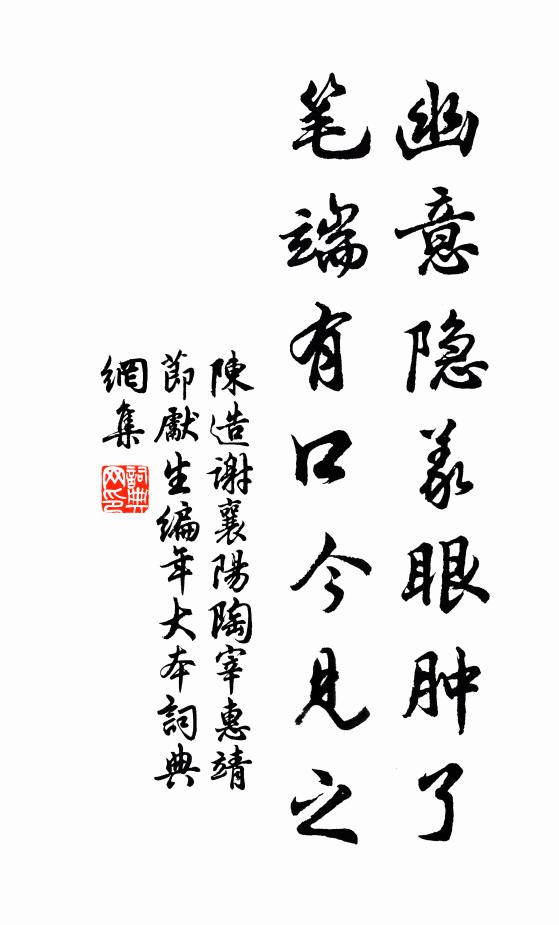 幽意隐义眼肿了
笔端有口今见之
陳造谢襄陽陶宰惠靖
節獻生编年大本詞典
網集
詞典
网印